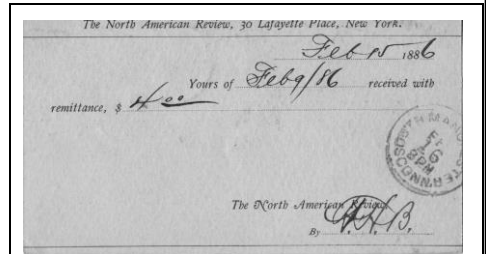 The North American Review, 30 Lafayette Place, New York.
Feb 15 1886
Yours of Feb 9/86 received with
remittance, $ 4.00
The North American Review,
By W.H.B.